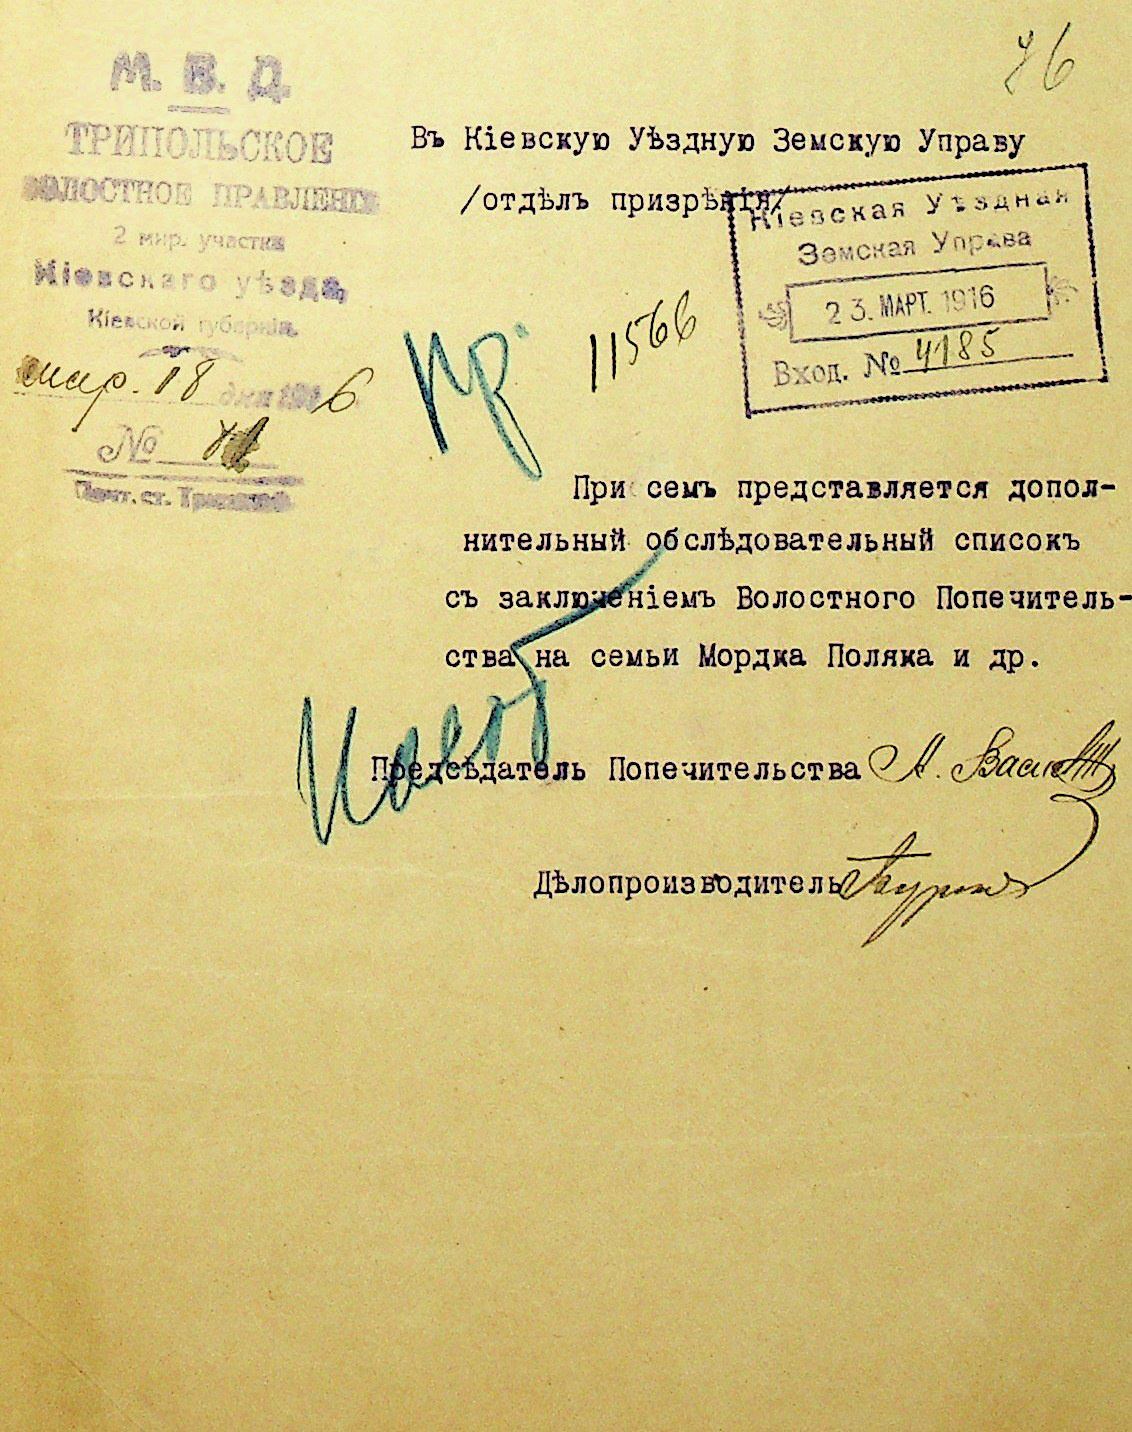 76
М. В. Д.
ТРИПОЛЬСКОЕ
ВОЛОСТНОЕ ПРАВЛЕНІЕ
2 мир. участка
Кіевскаго уѣзда,
Кіевской губерніи.
мар. 18 дня 1916
№
Въ Кіевскую Уѣздную Земскую Управу
/отдѣлъ призрѣнія/
Кіевская Уѣздная
Земская Управа
23. МАРТ. 1916
Вход. № 4185
11566
При семъ представляется допол-
нительный обслѣдовательный списокъ
съ заключеніемъ Волостного Попечитель-
ства на семьи Мордка Поляка и др.
Предсѣдатель Попечительства А.
Дѣлопроизводитель